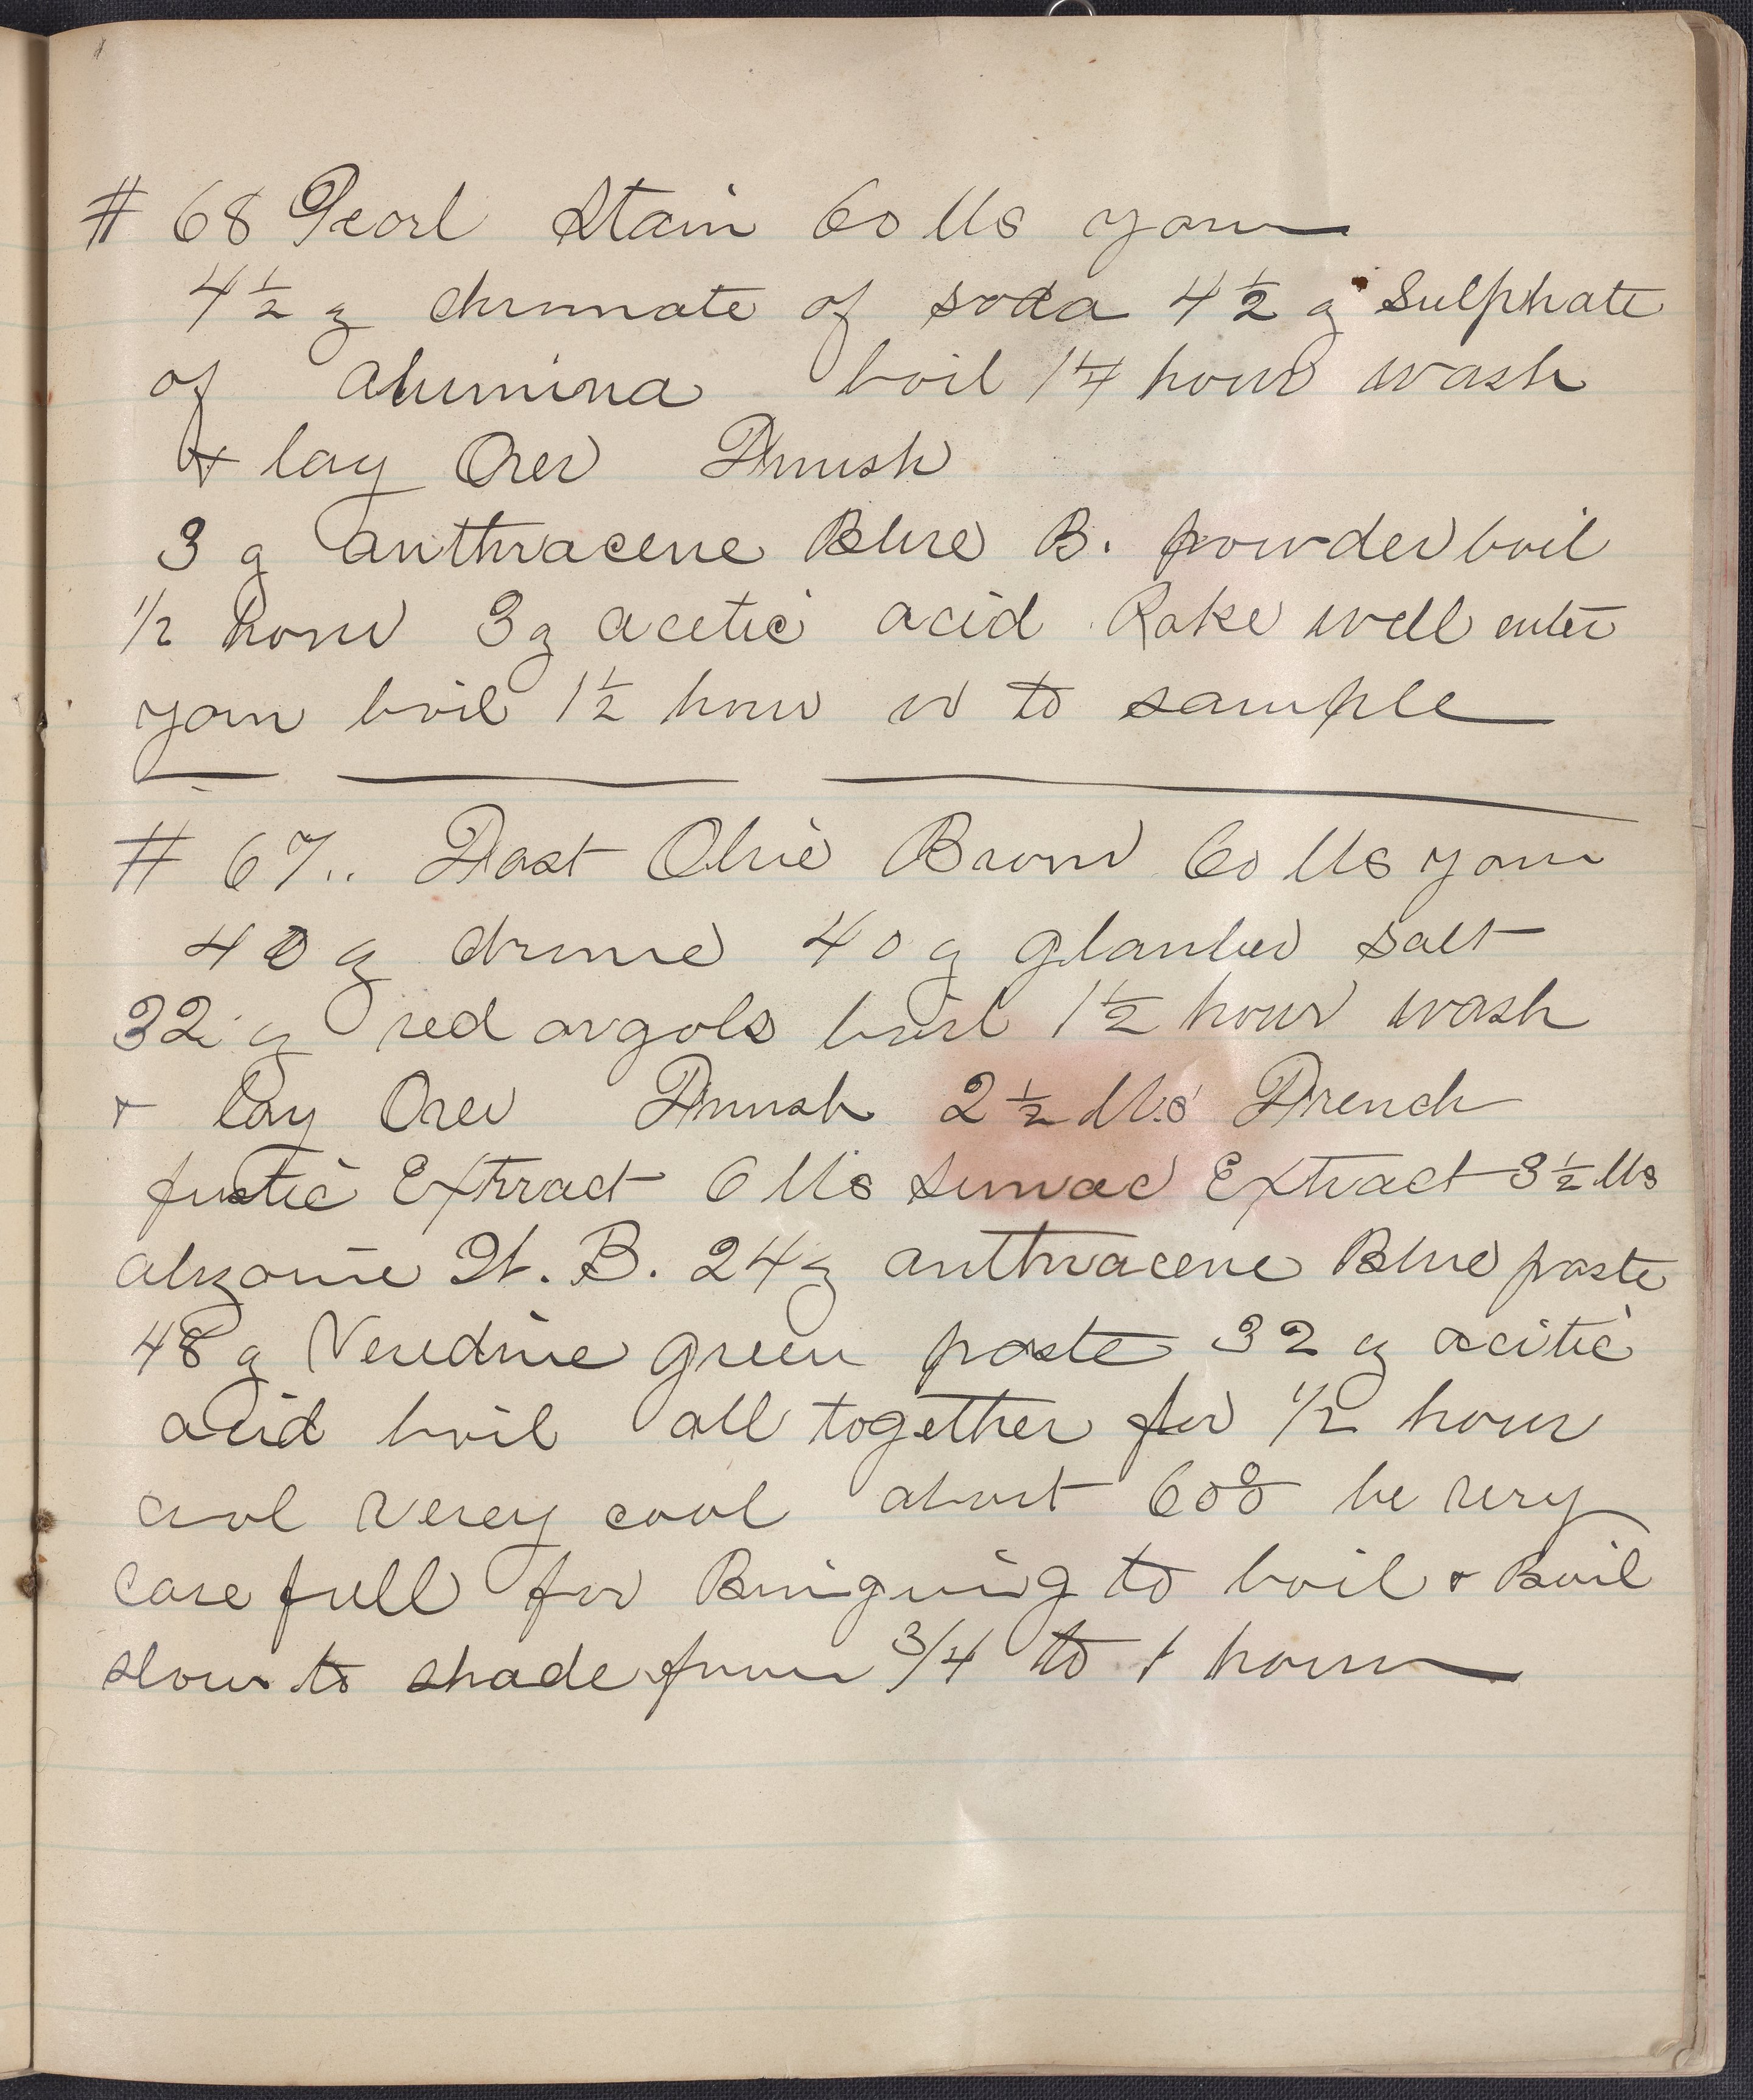 # 68 Pearl Stain 60 lbs yarn
4½ z chromate of soda 4½ z Sulphate
of alumina boil 1¼ hour wash
& lay Over Finish
3 z anthracene Blue B. powder boil
½ hour 3 z acetic acid Rake well enter
yarn boil 1½ hour or to sample
# 67.. Fast Olive Brown 60 lbs yarn
40 z chrome 40 z glauber salt
32 z red argols boil 1½ hour wash
& lay Over Finish 2½ lbs French
fustic Extract 6 lbs Sumac Extract 3½ lbs
alizarine W. B. 24 z anthracene Blue paste
48 z Veredine green paste 32 z acitic
acid boil all together for ½ hour
cool verey cool about 60° be very
care full for Bringing to boil & Boil
slow to shade from 3/4 to 1 hour